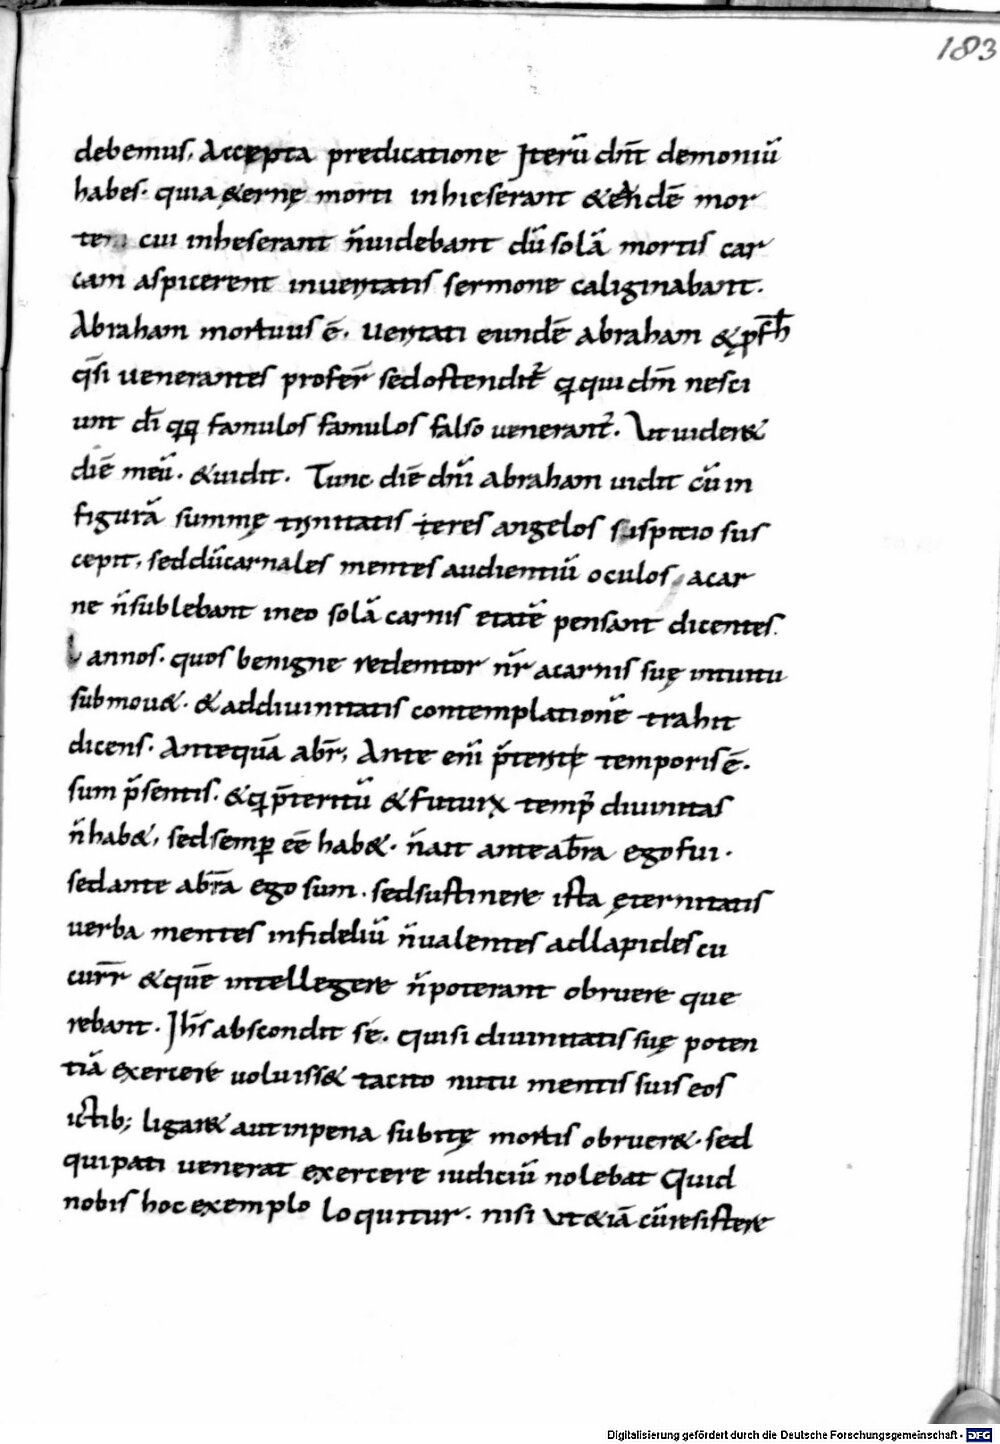 183
debemus. Accepta predicatione Iterū dn̄t demoniū
habes. quia &ernę morti inhieserant & eandē mor
tem cui inheserant n̄ uidebant dū solā mortis car
cam aspicerent inueritatis sermone caliginabant.
Abraham mortuus ē. Ueritati eundē abraham & ꝓph̄
q̄si uenerantes profer̄ sed ostendit̄ qꝫ qui dm̄ nesci
unt dī qꝗ famulos famulos falso uenerant̄. Ut uider&
diē meū. & uidit. Tunc diē dnī abraham uidit cū in
figurā summę trinitatis teres angelos suspitio sus
cepit, sed dū carnales mentes audientiū oculos acar
ne n̄ sublebant ineo solā carnis etatē pensant dicentes.
L annos. quos benigne redemtor nr̄ acarnis suę intuitu
submou&. & addiuinitatis contemplationē trahit
dicens. Antequā abr̄, Ante enī p̄teriti temporis ē.
sum p̄sentis. & qꝫ p̄teritū & futuꝝ temp̄ diuinitas
n̄ hab&, sed semꝑ eē hab&. n̄ ait ante abr̄a ego fui.
sed ante abr̄a ego sum. sed sustinere ista ęternitatis
uerba mentes infideliū n̄ ualentes ad lapides cu
currr̄ & quē intellegere n̄ poterant obruere que
rebant. Ihs̄ abscondit sē. qui si diuinitatis suę poten
tiā exercere uoluiss& tacito nutu mentis suis eos
ictib; ligar& aut inpena subitę mortis obruer&. sed
qui pati uenerat exercere iudiciū nolebat Quid
nobis hoc exemplo loquitur. nisi ut &iā cū resistere
Digitalisierung gefördert durch die Deutsche Forschungsgemeinschaft - DFG